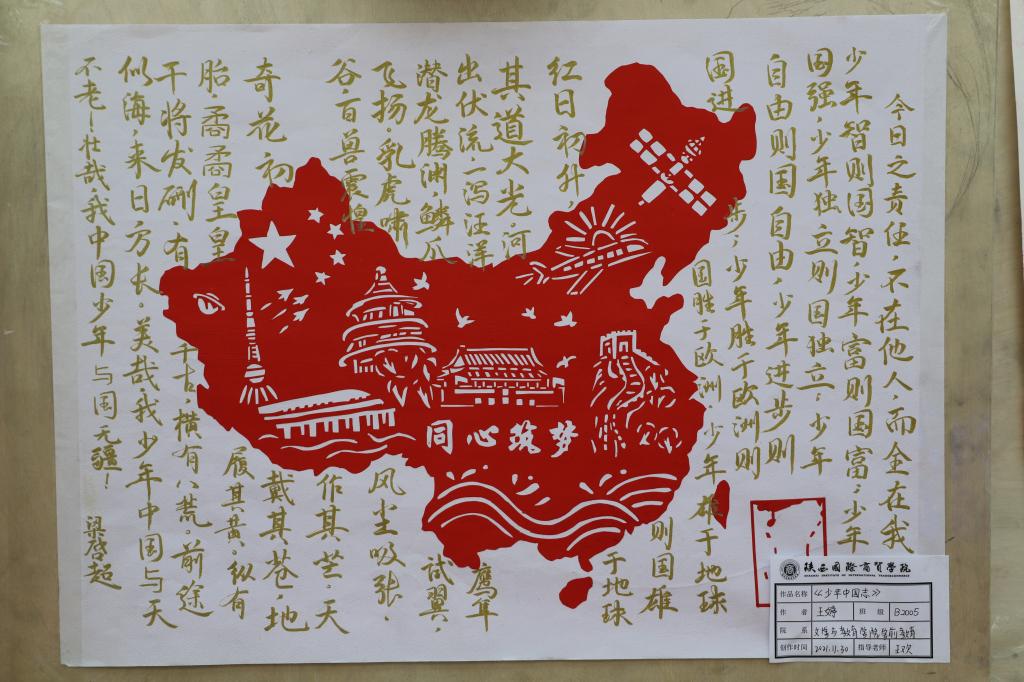 今日之责任,不在他人,而全在我
少年智则国智,少年富则国富;少年
国强,少年独立则国独立;少年
自由则国自由,少年进步则
国进
步;少年胜于欧洲则
国胜于欧洲,少年雄于地球
则国雄
于地球
红日初升,
其道大光。河
出伏流,一泻汪洋
潜龙腾渊鳞爪
飞扬。乳虎啸
谷,百兽震惶
鹰隼
试翼,
风尘吸张。
奇花初
胎,矞矞皇皇
干将发硎,有
作其芒。天
戴其苍,地
履其黄。纵有
千古,横有八荒。前途
似海,来日方长。美哉我少年中国与天
不老!壮哉,我中国少年与国无疆!
梁启超
同心筑梦
陕西国际商贸学院
SHAANXI INSTITUTE OF INTERNATIONAL TRADE&COMMERCE
作品名称 《少年中国志》
作者 王婷 班级 B2005
院系 文学与教育学院学前教育
创作时间 2021.11.30 指导老师 王欢